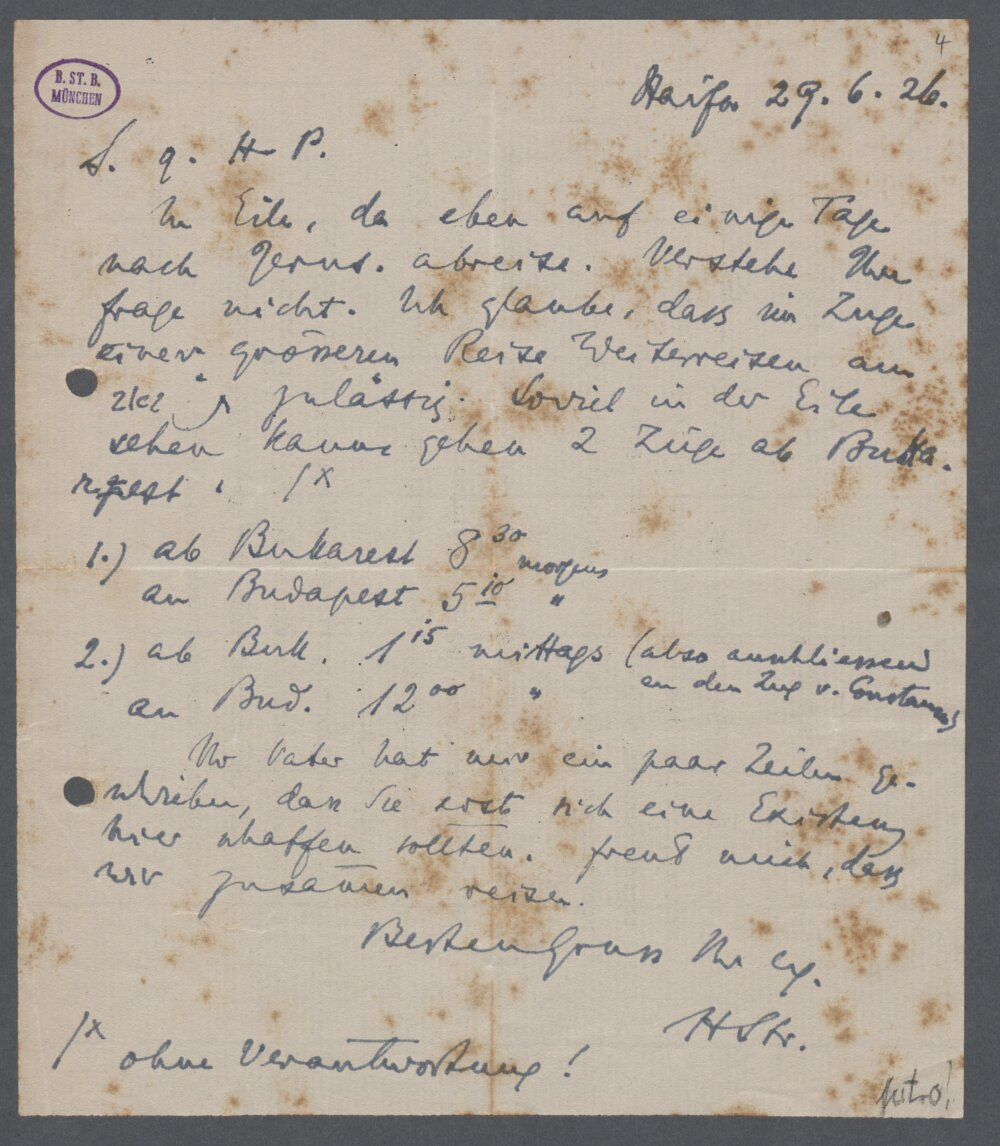 4
B. ST. B.
MÜNCHEN
Haifa 29. 6. 26.
S. g. H P.
In Eile, da eben auf einige Tage
nach Jerus. abreise. Verstehe Ihre
Frage nicht. Ich glaube, dass im Zuge
einer grösseren Reise Weiterreisen am
zulässig. Soviel in der Eile
sehen kann gehen 2 Züge ab Buka-
rest. /x
1.) ab Bukarest 8 30 morgens
an Budapest 5 10 "
2.) ab Buk. 1 15 mittags (also anschliessend
an den Zug v. Constanza)
an Bud. 12 00 "
Ihr Vater hat mir ein paar Zeilen ge-
schrieben, dass Sie erst sich eine Existenz
hier schaffen sollten. Freut mich, dass
wir zusam̅en reisen.
Besten Gruss Ihr erg.
HStr.
/x ohne Verantwortung!